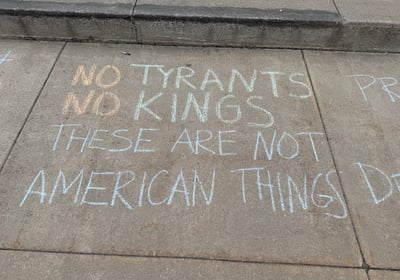 NO TYRANTS
NO KINGS
THESE ARE NOT
AMERICAN THINGS